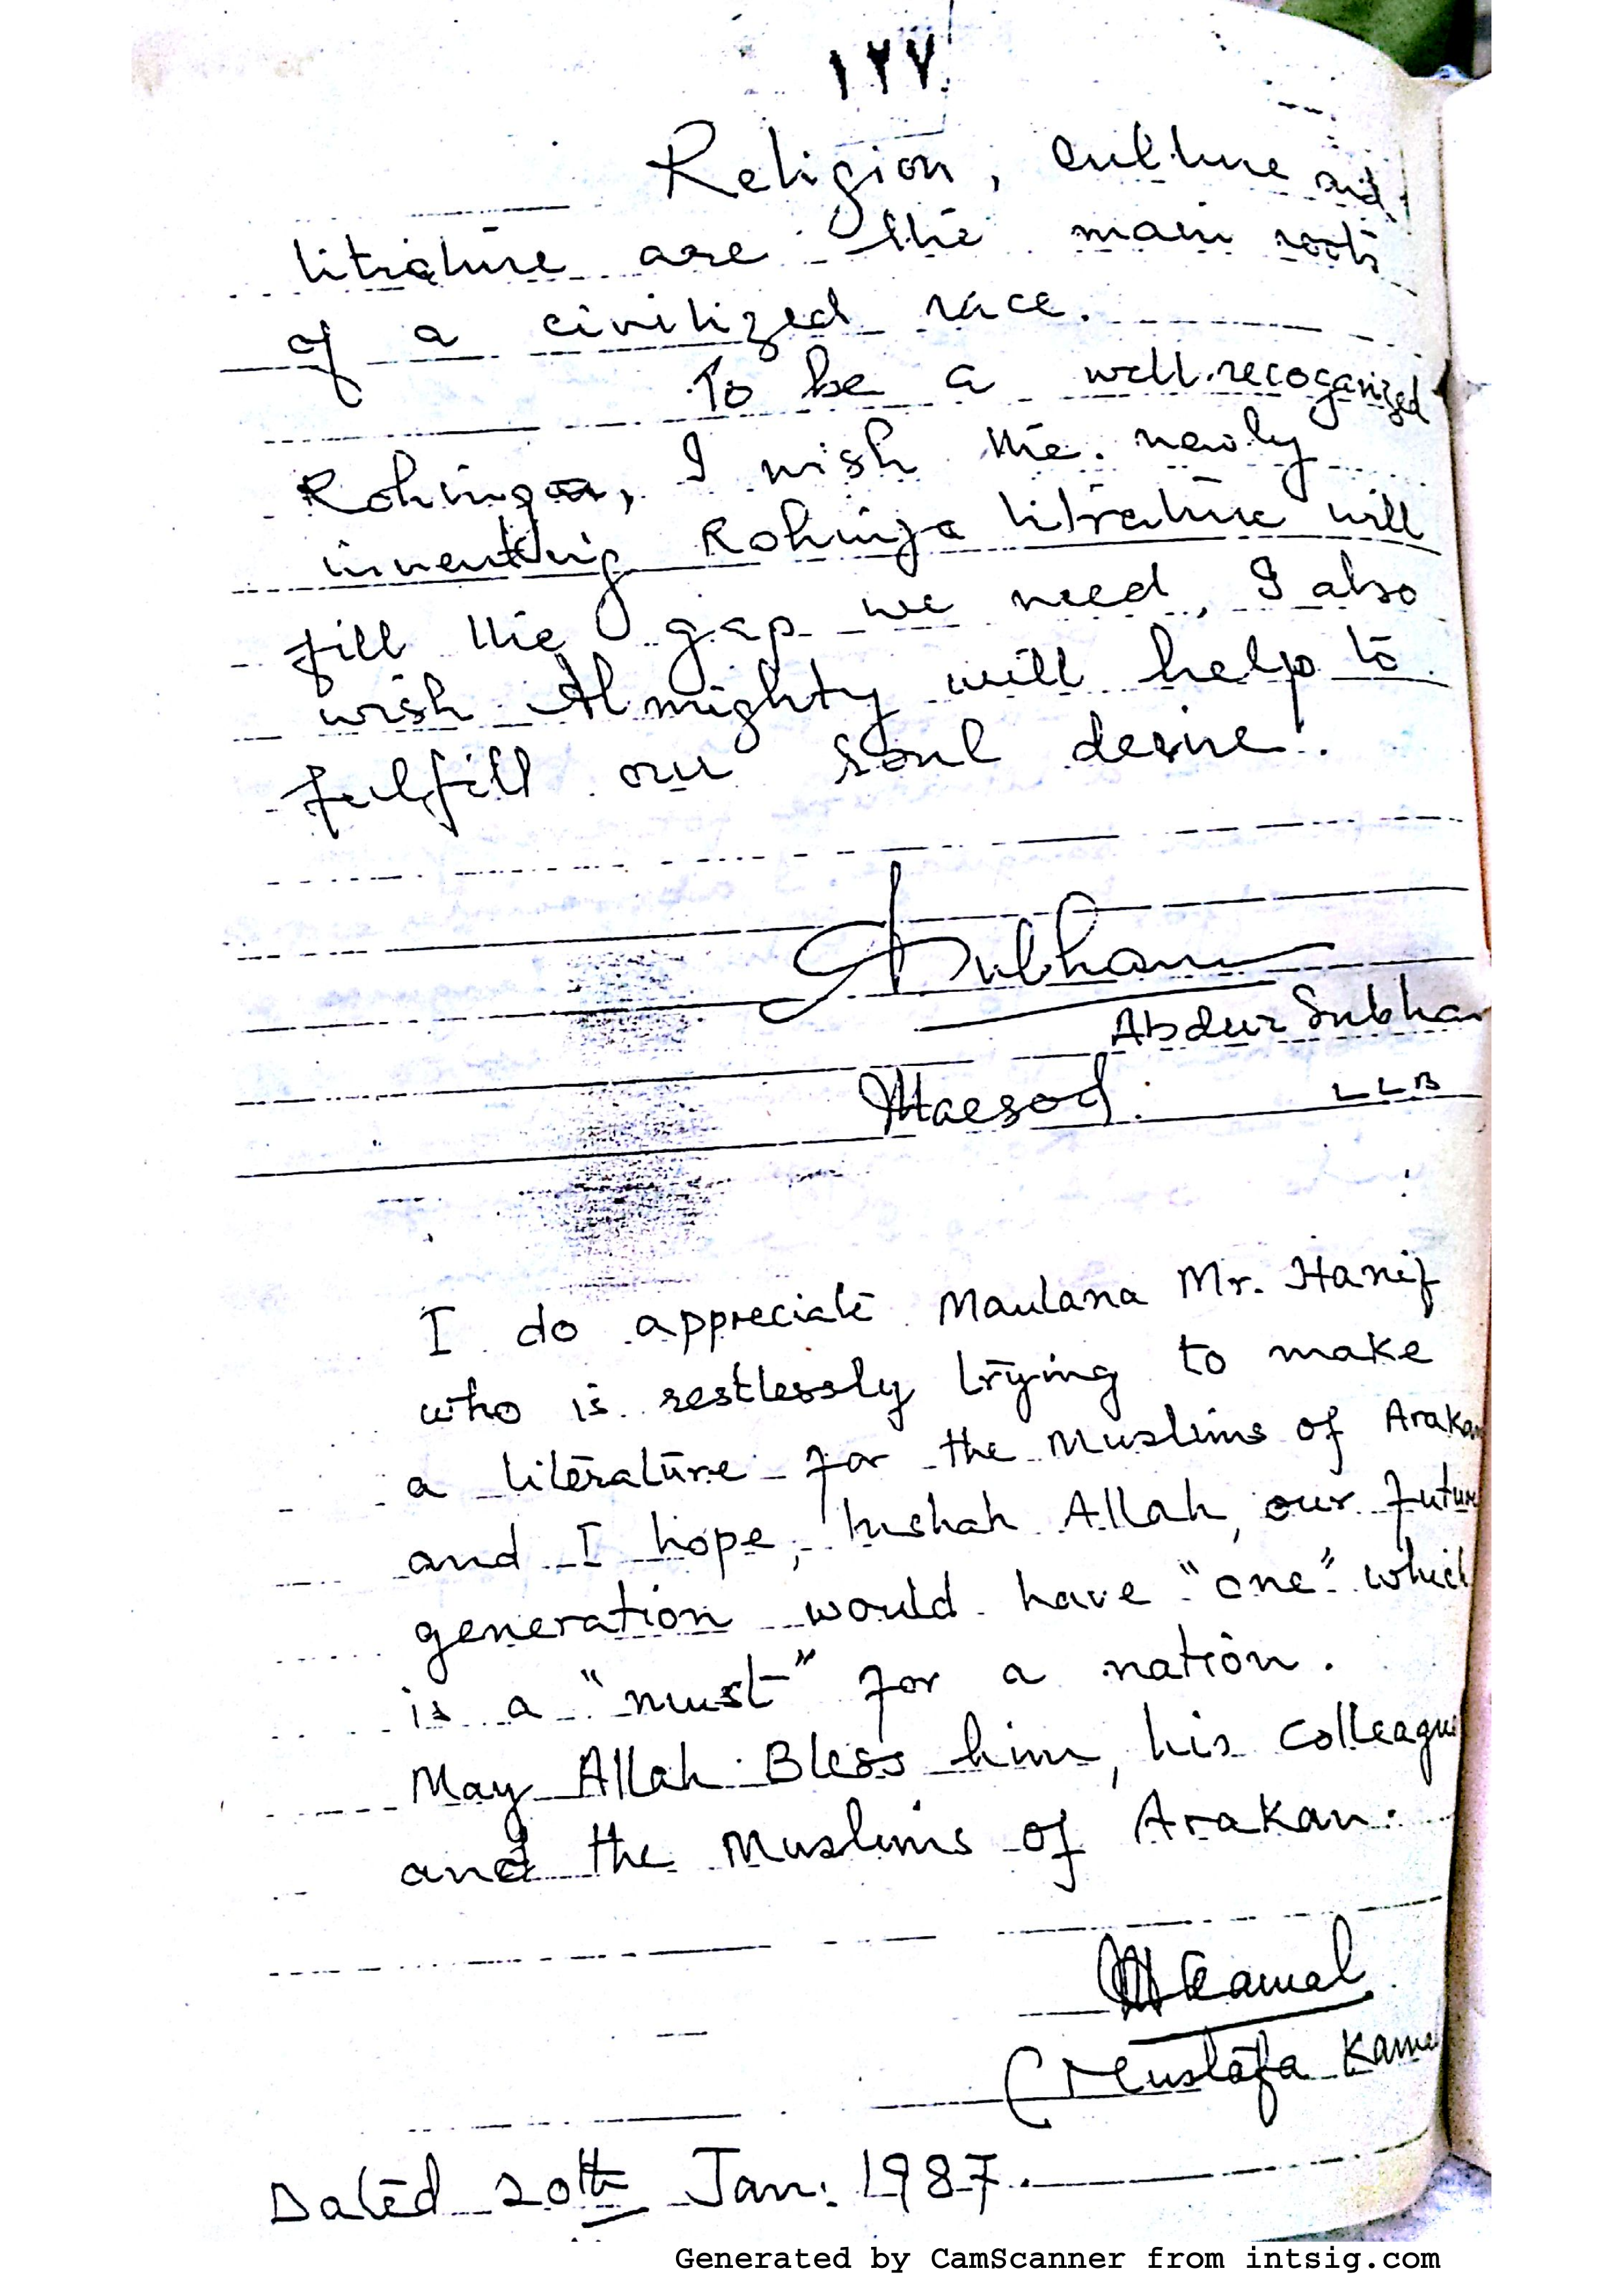 ١٢٧
Religion, culture and
litrature are the main roots
of a civilized race.
To be a well.recoganized
Rohinga, I wish the newly
inventing Rohinga litrature will
fill the gap we need, I also
wish Almighty will help to
fulfill our soul desire.
Subhan
Abdur Subhan
Maesod. LLB
I do appreciate Maulana Mr. Hanif
who is restlessly trying to make
a literature for the Muslims of Arakan
and I hope, Inshah Allah, our future
generation would have "one" which
is a "must" for a nation.
May Allah Bless him, his colleague
and the Muslims of Arakan.
MKamal
(Mustafa Kama
Dated 20th Jan: 1987.
Generated by CamScanner from intsig.com